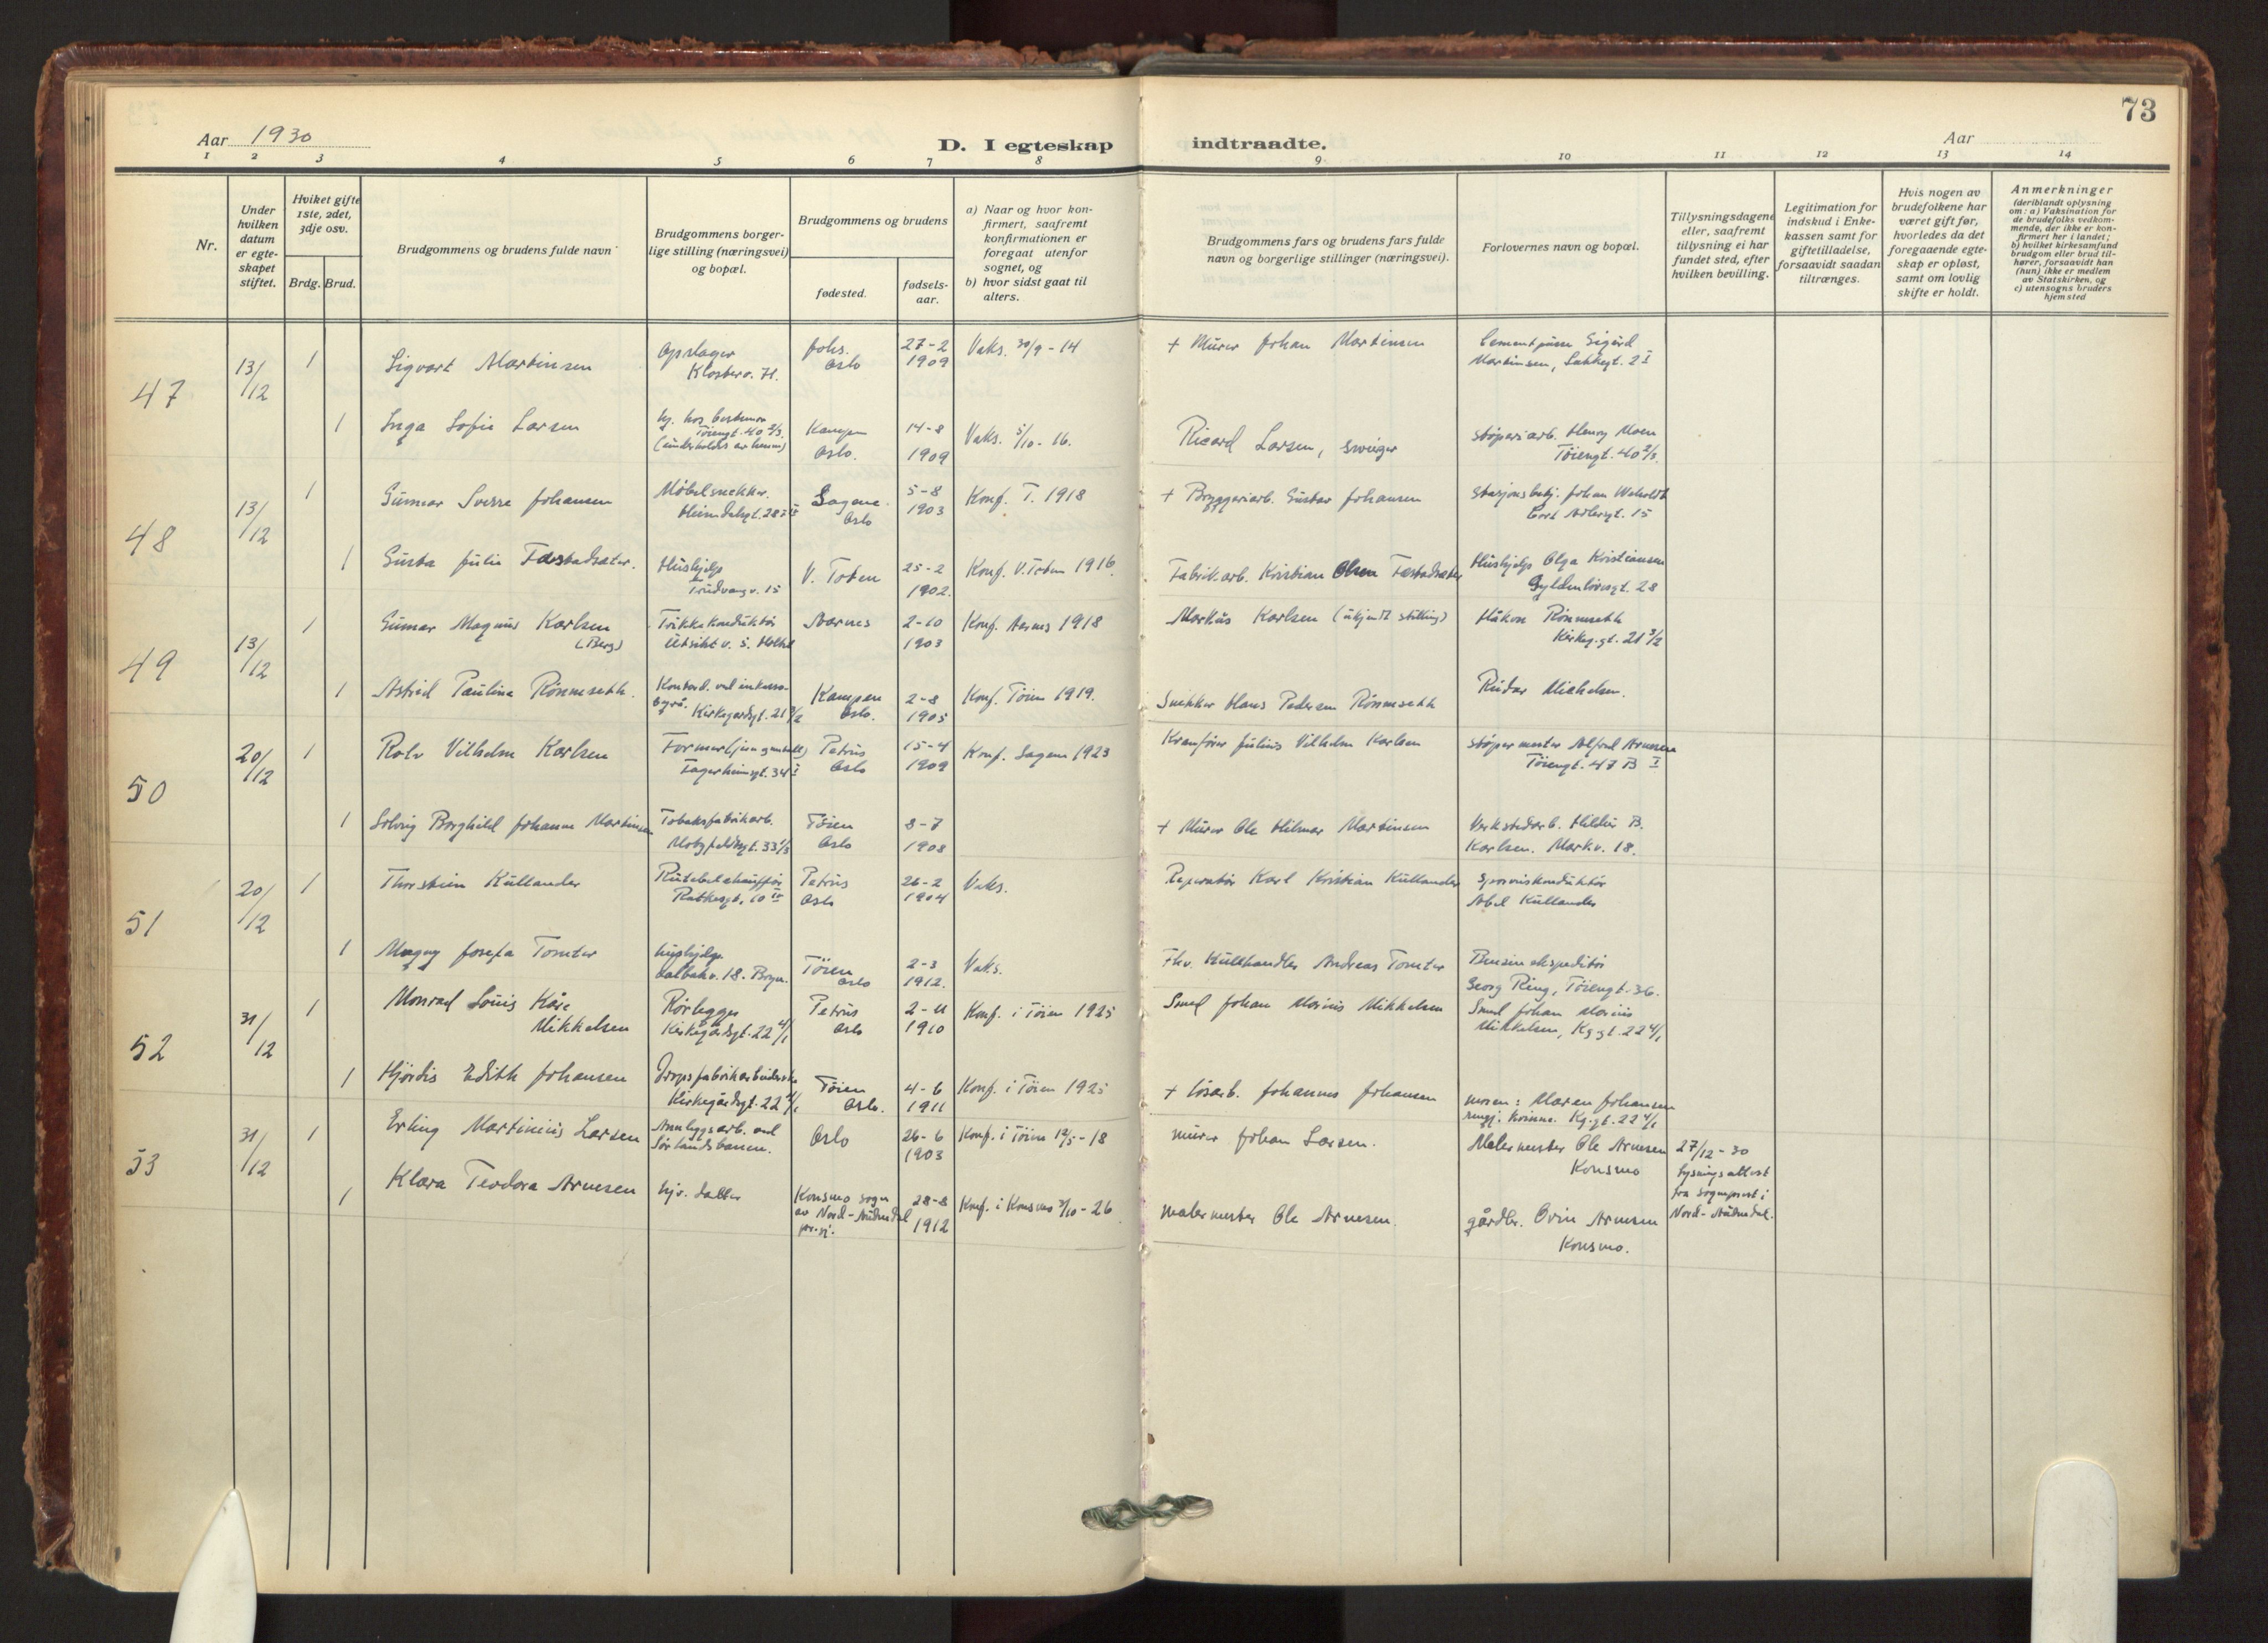 73
Aar 1930
D. I egteskap indtraadte.
Aar
1 2 3 4 5 6 7 8 9 10 11 12 13 14
Nr.
Under hvilken datum er egteskapet stiftet.
Hviket gifte 1ste, 2det, 3dje osv.
Brdg. Brud.
Brudgommens og brudens fulde navn
Brudgommens borgerlige stilling (næringsvei) og bopæl.
Brudgommens og brudens
fødested.
fødselsaar.
a) Naar og hvor konfirmert, saafremt konfirmationen er foregaat utenfor sognet, og
b) hvor sidst gaat til alters.
Brudgommens fars og brudens fars fulde navn og borgerlige stillinger (næringsvei).
Forlovernes navn og bopæl.
Tillysningsdagene eller, saafremt tillysning ei har fundet sted, efter hvilken bevilling.
Legitimation for indskud i Enkekassen samt for giftetilladelse, forsaavidt saadan tiltrænges.
Hvis nogen av brudefolkene har været gift før, hvorledes da det foregaaende egteskap er opløst, samt om lovlig skifte er holdt.
Anmerkninger (deriblandt oplysning om: a) Vaksination for de brudefolks vedkommende, der ikke er konfirmert her i landet; b) hvilket kirkesamfund brudgom eller brud tilhører, forsaavidt han (hun) ikke er medlem av Statskirken, og c) utensogns bruders hjemsted
47 13/12 1 Sigvart Martinsen Johs. Oslo 27-2 1909 Vaks. 30/9 - 14 + Murer Johan Martinsen Sigurd Martinsen
1 Inga Sofie Larsen Tøiengt. 40 2/3 Kampen Oslo. 14-8 1909 Vaks. 5/10 - 16. Ricard Larsen, støperiarb. Henry Moen Tøiengt. 40 2/3.
48 13/12 1 Gunnar Sverre Johansen Møbelsnekker. Sagene Oslo 5-8 1903 Konf. T. 1918 + Bryggeriarb. Gustav Johansen Johan Cort Adlersgt. 15
1 Gusta Julie Hushjelp Trudvangv. 15 V. Toten 25-2 1902. Konf. V. Toten 1916. Fabrik.arb. Kristian Olsen Hushjelp Olga Kristiansen Gyldenløvesgt. 28
49 13/12 1 Gunnar Magnus Karlsen (Berg) Aarnes 2-10 1903 Konf. Aarnes 1918 Markus Karlsen (ukjendt stilling) Håkon Rønnseth Kirkeg.gt. 21 3/2
1 Astrid Paulina Rønnseth. Kirkegårdsgt. 21 3/2 Kampen Oslo. 2-8 1905 Konf. Tøien 1919. Snekker Hans Pedersen Rønnseth Reidar Michelsen.
50 20/12 1 Rolv Vilhelm Karlsen Fagerheimgt. 34 I Petrus Oslo 15-4 1909 Konf. Sagene 1923 Kranfører Julius Vilhelm Karlsen støpermester Alfred Arnesen Tøiengt. 47 B I
1 Solveig Borghild Johanne Martinsen Tobaksfabrikarb. Tøien Oslo 8-7 1908 + Murer Ole Hilmar Martinsen Verkstedarb. Hildur B. Karlsen. Markv. 18.
51 20/12 1 Thorstein Kullander Rutebilchauffør Petrus Oslo 26-2 1904 Vaks. Reparatør Karl Kristian Kullander Sporveiskonduktør Abel Kullander
1 Magny Josefa Tomter hushjelp Bryn. Tøien Oslo 2-3 1912. Vaks. Fhv. Kullhandler Andreas Tomter Bensinekspeditør Georg Ring, Tøiengt. 36.
52 31/12 1 Monrad Louis Kåre Mikkelsen Rørlegger Kirkegårdsgt. 22 4/1 Petrus Oslo 2-11 1910 Konf. i Tøien 1925 Smed Johan Marius Mikkelsen Smed Johan Marius Mikkelsen, Kg.gt. 22 4/1
1 Hjørdis Edith Johansen Dropsfabrikarbeiderske Kirkegårdsgt. 22 4/1 Tøien Oslo. 4-6 1911 Konf. i Tøien 1925 + løsarb. Johannes Johansen moren: Maren Johansen rengj. kvinne. Kg.gt. 22 4/1
53 31/12 1 Erling Martinius Larsen Anleggsarb. ved Sørlandsbanen. Oslo 26-6 1903 Konf. i Tøien 12/5 - 18 murer Johan Larsen. Malermester Ole Arnesen Konsmo 27/12 - 30 lysningsattest fra sogneprest i Nord-Audnedal.
1 Klara Teodora Arnesen hjv. datter Konsmo sogn av Nord-Audnedal pr.gj. 28-8 1912 Konf. i Konsmo 3/10 - 26 malermester Ole Arnesen. gårdbr. Arnesen Konsmo.